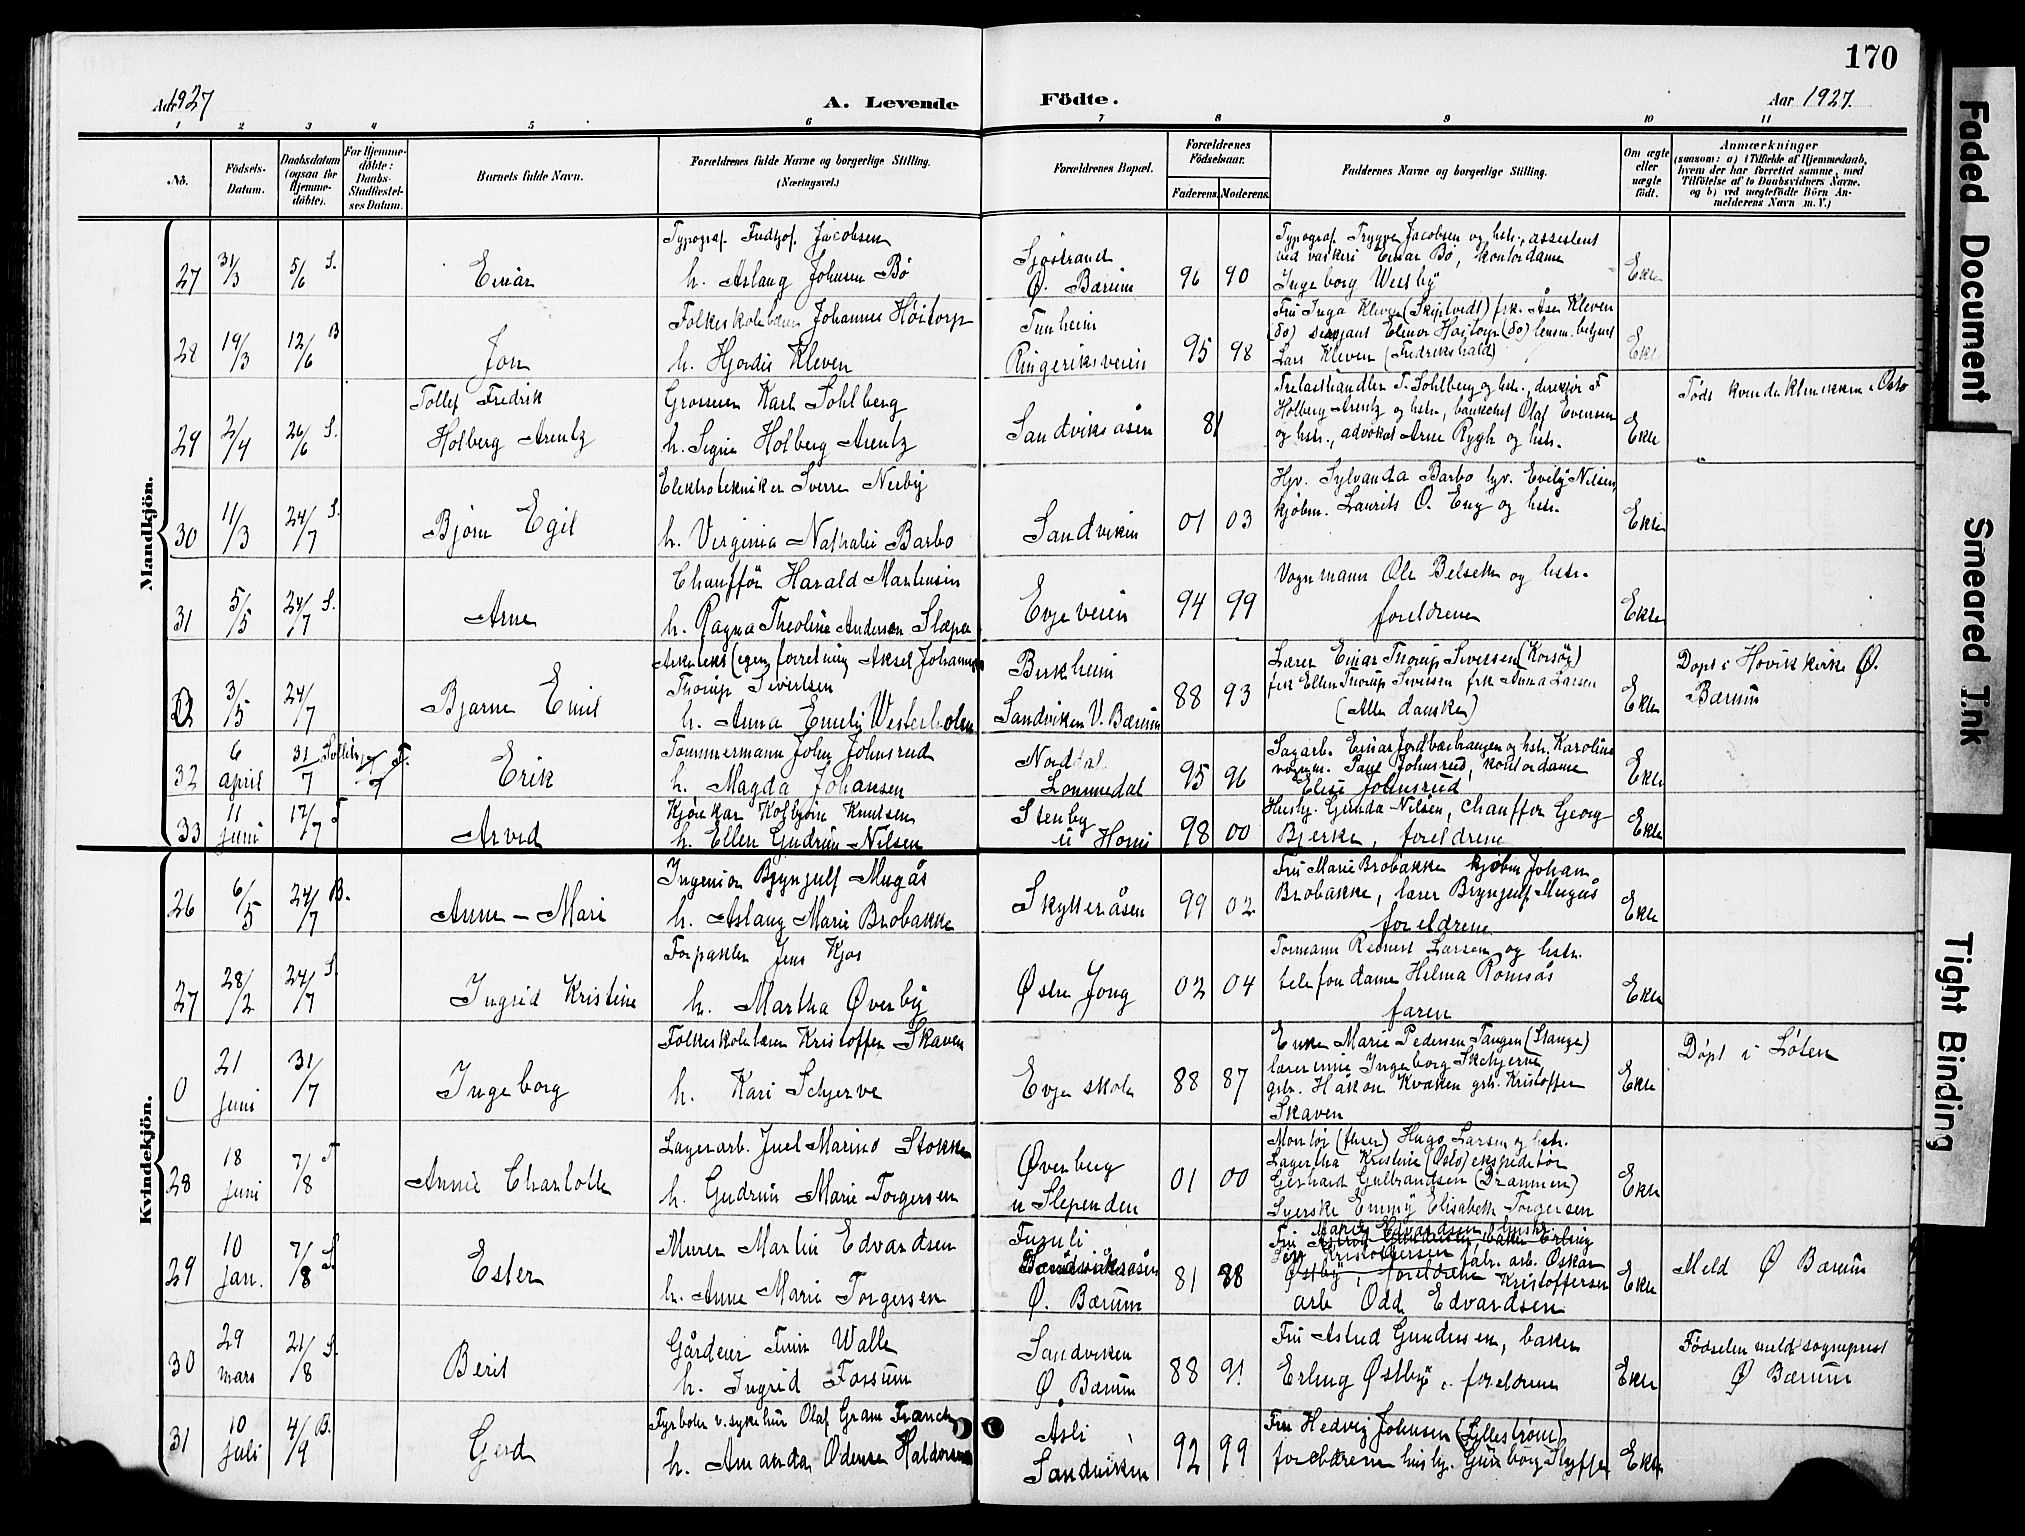 170
Aar 1927
A. Levende
Födte.
Aar 1927.
1 2 3 4 5 6 7 8 9 10 11
No.
Födsels-
Datum.
Daabsdatum
(ogsaa for
Hjemme-
döbte).
For Hjemme-
döbte:
Daabs-
Stadfæstel-
ses Datum.
Barnets fulde Navn.
Forældrenes fulde Navne og borgerlige Stilling.
(Næringsvei.)
Forældrenes Bopæl.
Forældrenes
Födselsaar.
Faderens. Moderens.
Faddernes Navne og borgerlige Stilling.
Om ægte
eller
uægte
födt.
Anmærkninger
(saasom: a) i Tilfælde af Hjemmedaab,
hvem der har forrettet samme, med
Tilföielse af to Daabsvidners Navne,
og b) ved uegtefödte Börn An-
melderens Navn m. V.)
Mandkjön.
27 31/3 5/6 S.
Einar
Typograf Jacobsen
h. Aslaug Johnsen Bö
Sjöstrand
Ö. Bærum
96 90
Typograf Trygve Jacobsen og hstr., assistent
ved vaskeri Einar Bö, kontordame
Ingeborg Westby
Ekte
28 19/3 12/6 B
Jon
Folkeskolelærer Johannes Höitorp
h. Hjordis Kleven
Tunheim
Ringeriksveien
95 98
Fru Inga Kleven (Skiptvedt) frk. Åse Kleven
(do) sersjant Einar Höitorp (do) lensm. betjent
Lars Kleven (Fredrikshald)
Ekte
29 2/4 26/6 S.
Tollef Fredrik
Holberg Arentz
Grosserer Karl Sohlberg
h. Signe Holberg Arentz
Sandviksåsen
81
Trelasthandler T. Sohlberg og hstr., direktör F
Holberg Arentz og hstr., banksjef Olaf Evensen
og hstr., advokat Arne Rygh og hstr.
Ekte
Födt kvindeklinikken i Oslo
30 11/3 24/7 S.
Björn Egil
Elektrotekniker Sverre Neeby
h. Virginia Nathalie Barbo
Sandviken
01 03
Hjv. Sylvanda Barbo hjv. Evely Nilsen,
kjöbm. Laurits O. Eng og hstr.
Ekte
31 5/5 24/7 S.
Arne
Chaufför Harald Martinsen
h. Ragna Theoline Andersen Slæpa
Evjeveien
94 99
Vognmann Ole Belset og hstr.
foreldrene
Ekte
0 3/5 24/7
Bjarne Emil
Arkitekt (egen forretning Aksel Johannes
Thorup Sivertsen
h. Anna Emely Westerholm
Birkheim
Sandviken V. Bærum
88 93
Lærer Einar Thorup Sivertsen (Korsör)
frk Ellen Thorup Sivertsen frk Anna Larsen
(Alle danske)
Ekte
Döpt i Hövik kirke Ö.
Bærum
32 6 april 31/7
Erik
Tömmermann John Johnsrud
h. Magda Johansen
Nordal
Lommedal
95 96
Sagarb. Einar og hstr. Karoline
vognm. Paul Johnsrud, kontordame
Elise Johnsrud
Ekte
33 11 juni 17/7 T
Arvid
Kjörekar Kolbjörn Knutsen
h. Ellen Gudrun Nilsen
Stenby
u Horni
98 00
Husbj. Gunda Nilsen, Chaufför Georg
Bjerke, foreldrene
Ekte
Kvindekjön.
26 6/5 24/7 B.
Anne-Mari
Ingeniör Brynjulf Mugås
h. Aslaug Marie Brobakke
Skytteråsen
99 02
Fru Marie Brobakke kjöbm Johan
Brobakke, lærer Brynjulf Mugås
foreldrene
Ekte
27 28/2 24/7 S.
Ingrid Kristine
Forpakter Jens Kjos
h. Martha Överby
Östre Jong
02 04
Formann Reinert Larsen og hstr.
telefondame Helma Romsås
faren
Ekte
0 21 juni 31/7
Ingeborg
Folkeskolelærer Kristoffer Skaven
h. Kari Schjerve
Evje skole
88 87
Enke Marie Pedersen Tangen (Stange)
lærerinne Ingeborg Skjerve
grb. Håkon Kvaken grb. Kristoffer
Skaven
Ekte
Döpt i Löten
28 18 juni 7/8 T
Annie Charlotte
Lagerarb. Juel Marino Stokke
h. Gudrun Marie Torgersen
Överberg
u Slependen
01 00
Montör Hugo Larsen og hstr.
Lagertha Kristine (Oslo) ekspeditör
Gerhard Gulbrandsen (Drammen)
Syerske Emmy Elisabeth Torgersen
Ekte
29 10 jan. 7/8 S.
Ester
Murer Martin Edvardsen
h. Anne Marie Torgersen
Furuli
Sandviksåsen
Ö. Bærum
81 88
Marie Edvardsen
Fru Astrid Gundersen, baker Erling
Kristoffersen fabr. arb. Oskar
Östby, foreldrene Kristoffersen
arb Odd Edvardsen
Ekte
Meld Ö Bærum
30 29 mars 21/8 S.
Berit
Gårdeier Finn Walle
h. Ingrid Fossum
Sandviken
Ö. Bærum
88 91
Fru Astrid Gundersen, baker
Erling Östby, foreldrene
Ekte
Fødselen meld sogneprest
Ö Bærum
31 10 juli 4/9 B.
Gerd
Fyrböter v. sykehus Olaf Gram Franck
h. Amanda Odense Haldorsen
Asli
Sandviken
92 99
Fru Hedvig Johnsen (Lilleström)
foreldrene husbj.
Ekte
Faded Document
Smeared Ink
Tight Binding